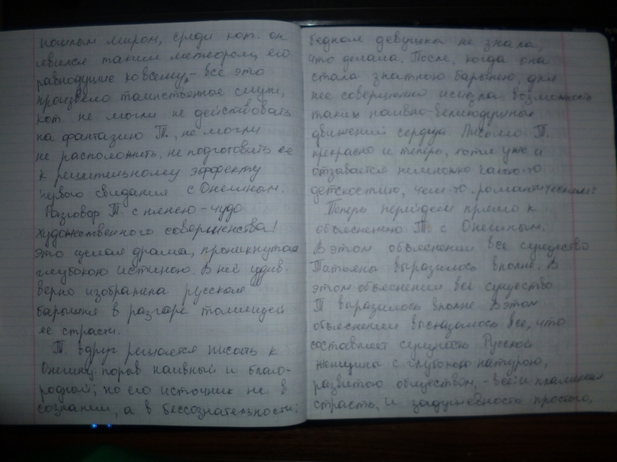 ным миром, среди кот. он
явился таким метеором, его
равнодушие ко всему, - все это
произвело таинственные слухи,
кот. не могли не действовать
на фантазию Т., не могли
не расположить, не подготовить ее
к решительному эффекту
первого свидания с Онегиным.
Разговор Т. с нянею - чудо
художественного совершенства!
Это целая драма, проникнутая
глубокою истиною. В ней удив.
верно изображена русская
барышня в разгаре томящей
ее страсти.
Т. вдруг решается писать к
Онегину: порыв наивный и благо-
родный; но его источник не в
сознании, а в бессознательности:
бедная девушка не знала,
что делала. После, когда она
стала знатною барынею, для
нее совершенно исчезла возможность
таких наивно-великодушных
движений сердца. Письмо Т.
прекрасно и теперь, хотя уже и
отзывается немножко какою-то
детскостию, чем-то "романтическим".
Теперь перейдем прямо к
объяснению Т. с Онегиным.
В этом объяснении все существо
Татьяны выразилось вполне. В
этом объяснении все существо
Т выразилось вполне. В этом
объяснении высказалось все, что
составляет сущность Русской
женщины с глубокою натурою,
развитою обществом, - все: и пламенная
страсть, и задушевность простого,